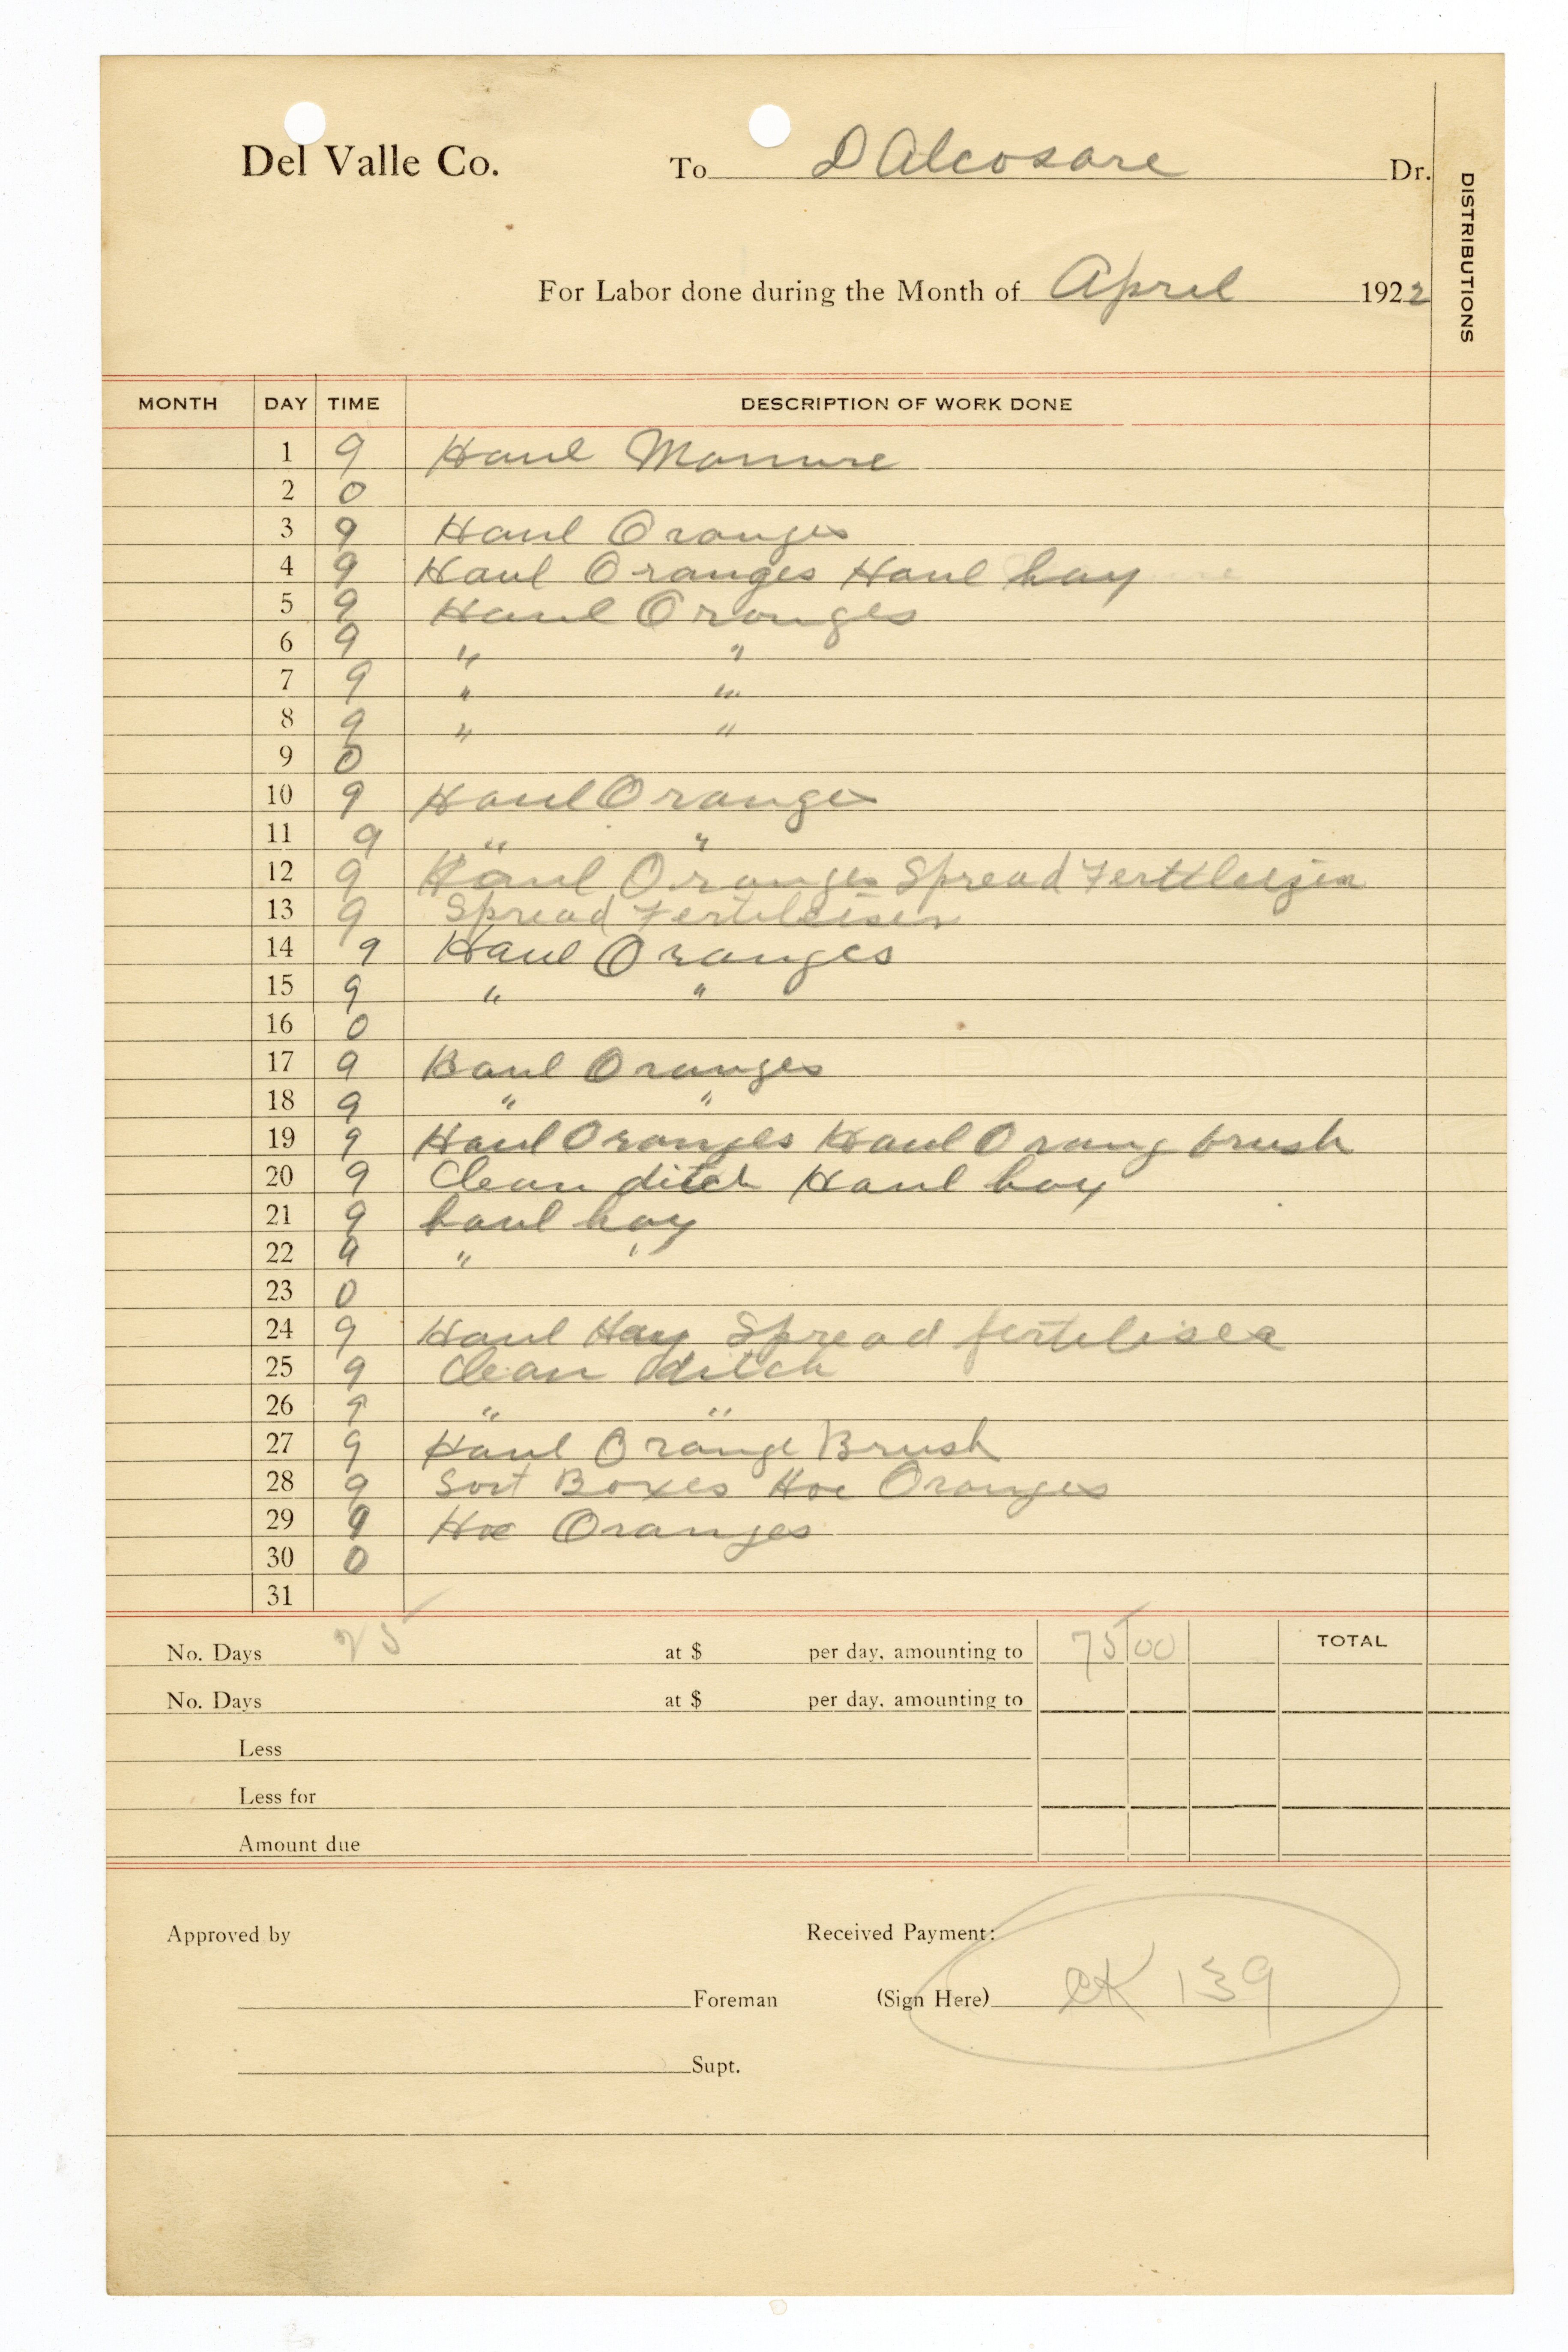 Del Valle Co. To D Alcosare Dr.
DISTRIBUTIONS
For Labor done during the Month of April 1922
MONTH DAY TIME DESCRIPTION OF WORK DONE
1 9 Haul Manure
2 0
3 9 Haul Oranges
4 9 Haul Oranges Haul hay
5 9 Haul Oranges
6 9 " "
7 9 " "
8 9 " "
9 0
10 9 Haul Oranges
11 9 " "
12 9 Haul Oranges Spread Fertileizer
13 9 Spread Fertileiser
14 9 Haul Oranges
15 9 " "
16 0
17 9 Haul Oranges
18 9 " "
19 9 Haul Oranges Haul Orang brush
20 9 Clean ditch Haul hay
21 9 haul hay
22 9 " "
23 0
24 9 Haul Hay Spread fertiliser
25 9 Clean ditch
26 9 " "
27 9 Haul Orange Brush
28 9 Sort Boxes Hoe Oranges
29 9 Hoe Oranges
30 0
31
No. Days 25 at $ per day, amounting to 75 00 TOTAL
No. Days at $ per day, amounting to
Less
Less for
Amount due
Approved by Received Payment:
Foreman (Sign Here) CK 139
Supt.